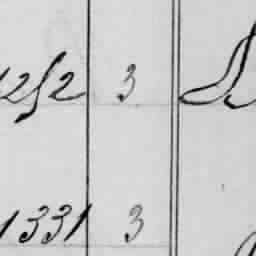 1252 3
1331 3